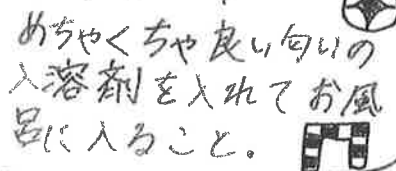 めちゃくちゃ良い匂いの
入溶剤を入れてお風
呂に入ること。